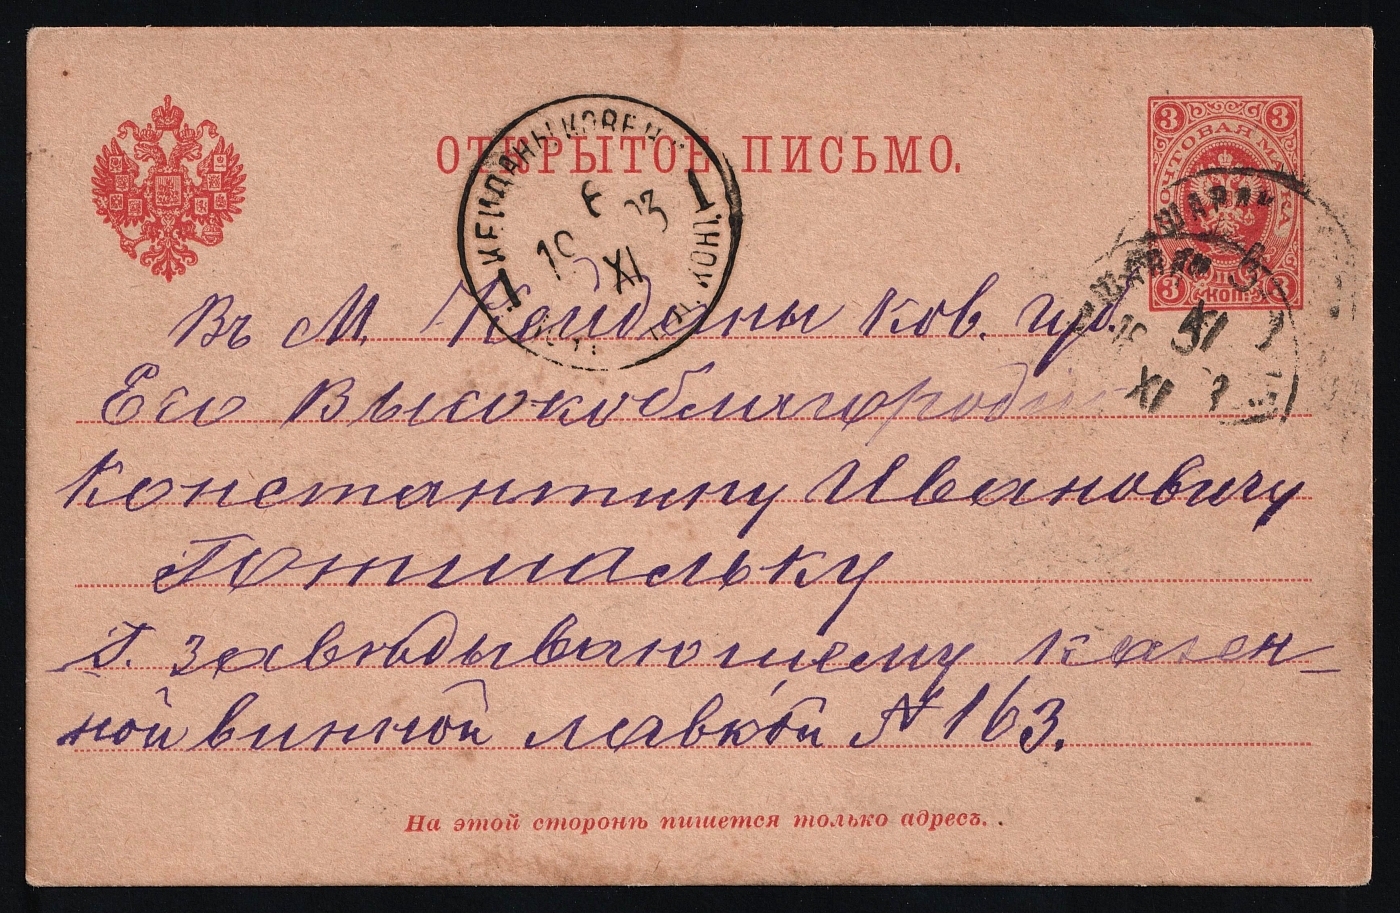 ОТКРЫТОЕ ПИСЬМО.
3 3
ПОЧТОВАЯ МАРКА
3 КОП. 3
КЕЙДАНЫ КОВЕН.
6
19 03
XI
ШАВЛИ
5
XI
XI
Въ М. Кейданы Ков. губ.
Его Высокоблагородiю
Константину Ивановичу
Готшальку
Г. завѣдывающему казен-
ной винной лавкой № 163.
На этой сторонѣ пишется только адресъ.